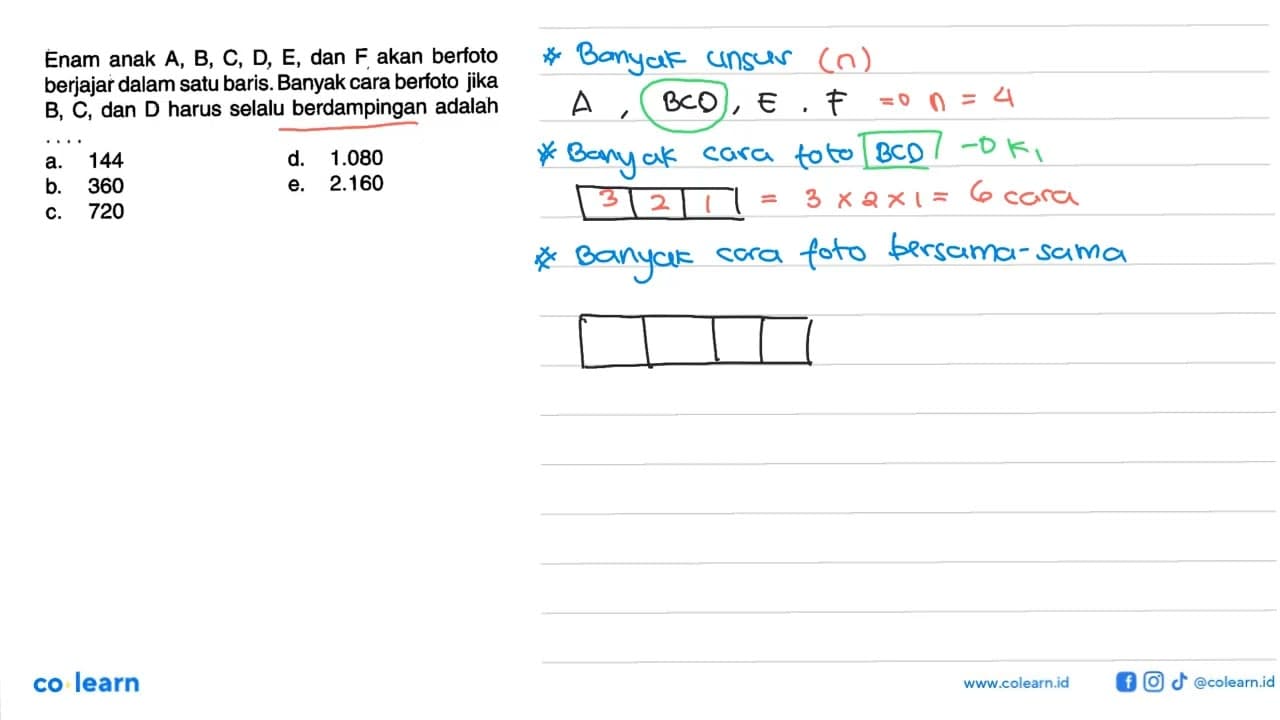 Enam anak A, B, C, D, E, dan F akan berfoto
berjajar dalam satu baris. Banyak cara berfoto jika
B, C, dan D harus selalu berdampingan adalah
....
a. 144
b. 360
c. 720
d. 1.080
e. 2.160
* Banyak unsur (n)
A , BCD , E . F => n = 4
* Banyak cara foto BCD → K1
3 2 1 = 3 x 2 x 1 = 6 cara
* Banyak cara foto bersama-sama
co learn
www.colearn.id
@colearn.id